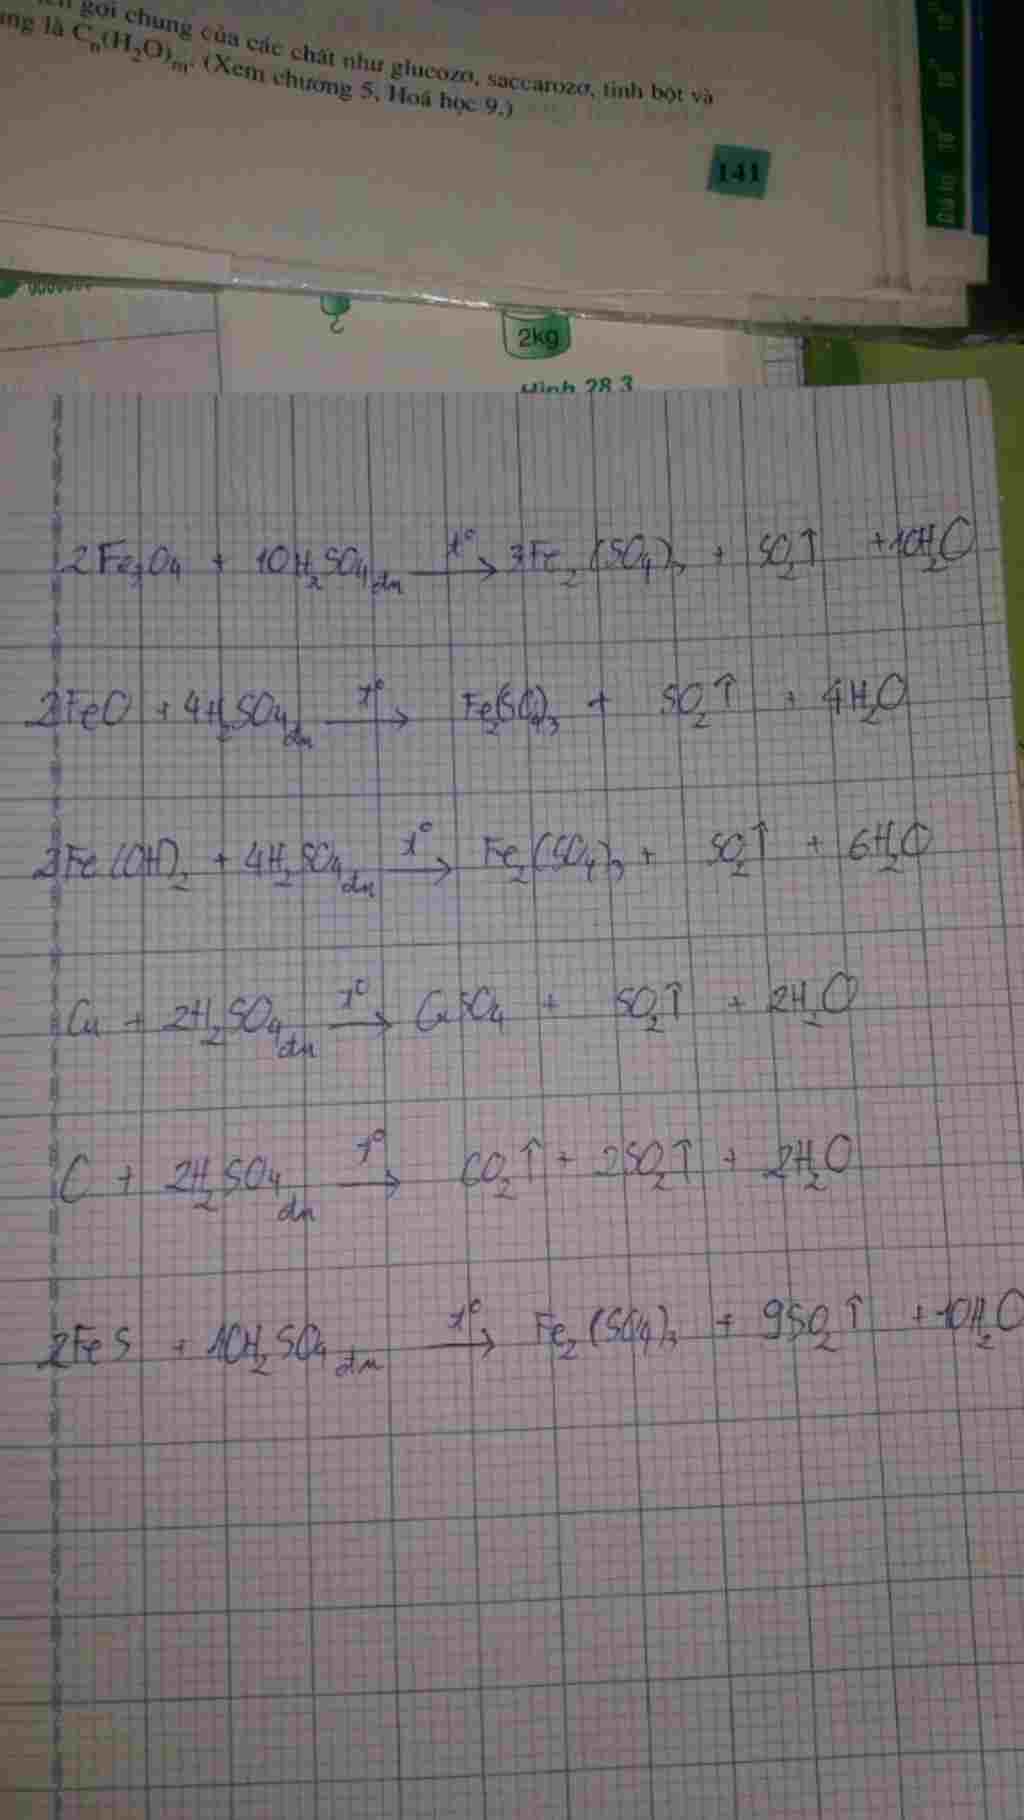 gọi chung của các chất như glucozơ, saccarozơ, tinh bột và
là Cₙ(H₂O)ₘ. (Xem chương 5, Hoá học 9.)
141
2kg
Hình 28.3
2Fe₃O₄ + 10H₂SO₄ đn t° → 3Fe₂(SO₄)₃ + SO₂↑ + 10H₂O
2FeO + 4H₂SO₄ đn t° → Fe₂(SO₄)₃ + SO₂↑ + 4H₂O
2Fe(OH)₂ + 4H₂SO₄ đn t° → Fe₂(SO₄)₃ + SO₂↑ + 6H₂O
Cu + 2H₂SO₄ đn t° → CuSO₄ + SO₂↑ + 2H₂O
C + 2H₂SO₄ đn t° → CO₂↑ + 2SO₂↑ + 2H₂O
2FeS + 10H₂SO₄ đn t° → Fe₂(SO₄)₃ + 9SO₂↑ + 10H₂O